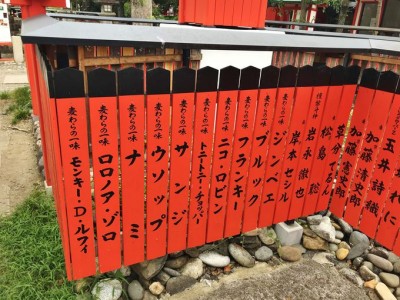 麦わらの一味
モンキー・D・ルフィ
麦わらの一味
ロロノア・ゾロ
麦わらの一味
ナミ
麦わらの一味
ウソップ
麦わらの一味
サンジ
麦わらの一味
トニートニー・チョッパー
麦わらの一味
ニコ・ロビン
麦わらの一味
フランキー
麦わらの一味
ブルック
麦わらの一味
ジンベエ
岸本セシル
岩永徹也
加藤
加藤清史郎
玉井詩織